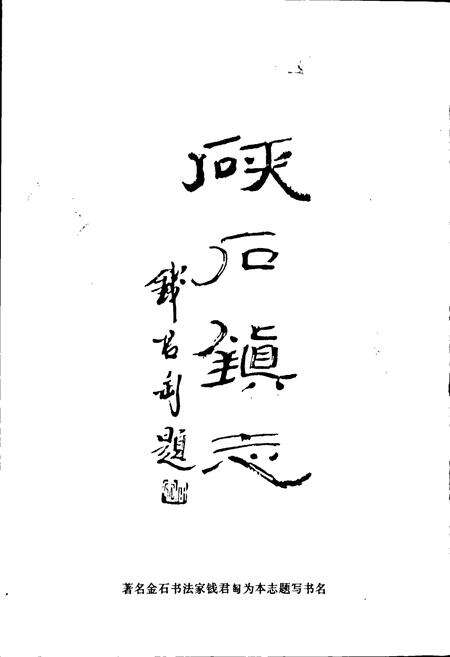 硤石鎮志
錢君匋題
著名金石书法家钱君匋为本志题写书名